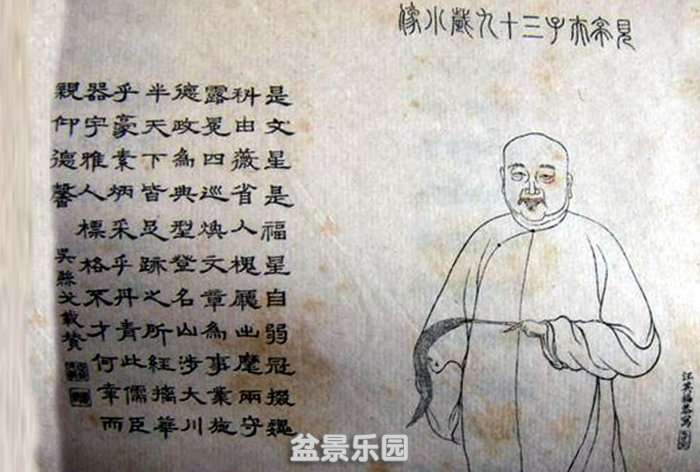 見亭夫子三十九歲小像
是文星是福星自弱冠掇巍
科由薇省入槐廳出麾兩守
露冕四巡煥文章為事業施
德政為典型登名山涉大川
半天下皆足跡之所經摛華
乎豪素炳采乎丹青此儒臣
器宇雅人標格不才何幸而
親仰德馨 吳縣戈載贊
汪英福恭寫
盆景乐园